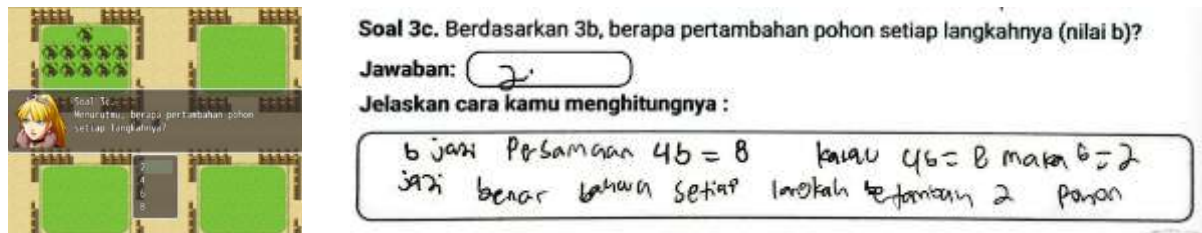 Soal 3c.
Menurutmu, berapa pertambahan pohon
setiap langkahnya?
2
4
6
8
Soal 3c. Berdasarkan 3b, berapa pertambahan pohon setiap langkahnya (nilai b)?
Jawaban: 2.
Jelaskan cara kamu menghitungnya :
b jari Persamaan 4b = 8 kalau 4b = 8 maka b = 2
jadi benar bahwa setiap langkah bertambah 2 pohon